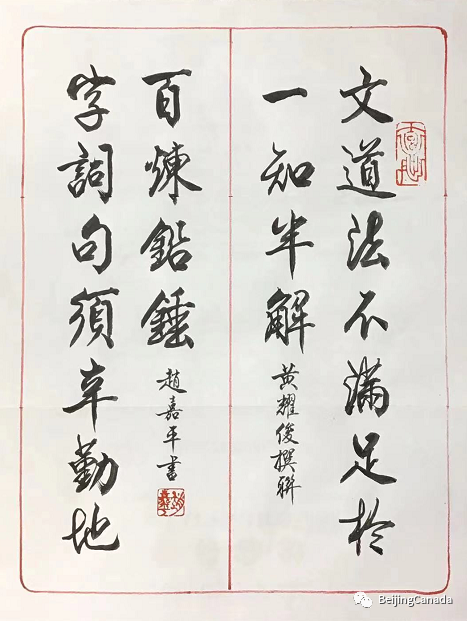 文道法不滿足於
一知半解
黃耀俊撰聯
字詞句須辛勤地
百煉鉛錘
趙嘉平書
BeijingCanada